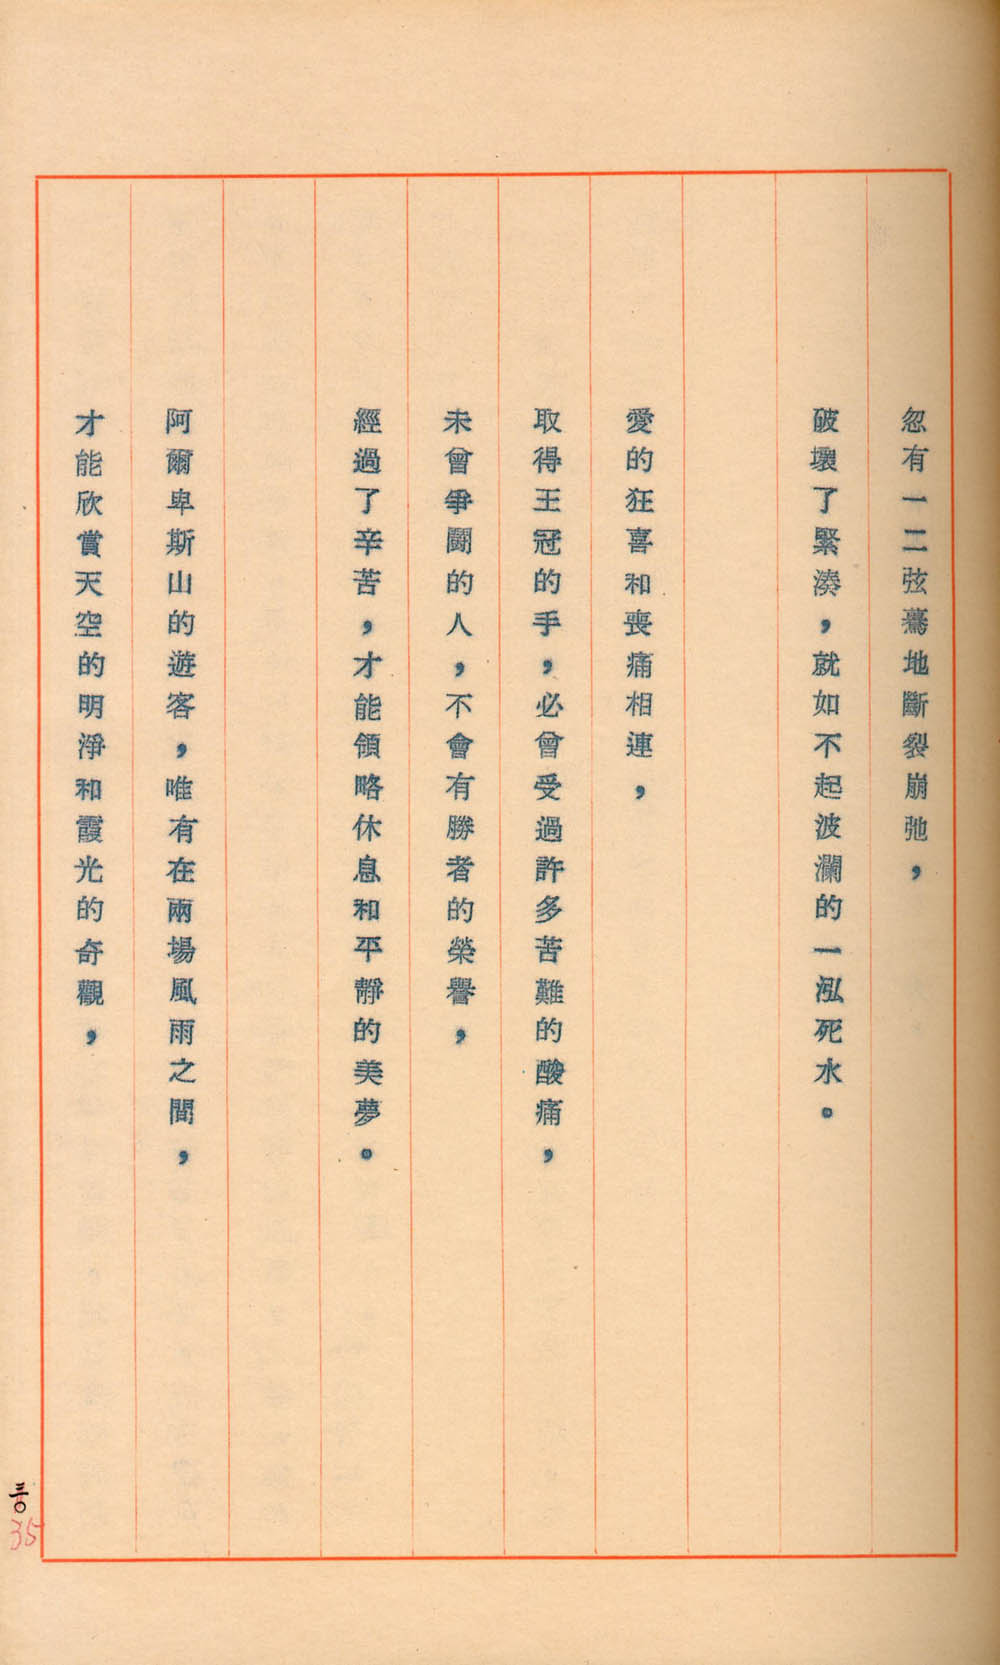 忽有一二弦驀地斷裂崩弛，
破壞了緊湊，就如不起波瀾的一泓死水。
愛的狂喜和喪痛相連，
取得王冠的手，必曾受過許多苦難的酸痛，
未曾爭鬪的人，不會有勝者的榮譽，
經過了辛苦，才能領略休息和平靜的美夢。
阿爾卑斯山的遊客，唯有在兩場風雨之間，
才能欣賞天空的明淨和霞光的奇觀，
三〇
35